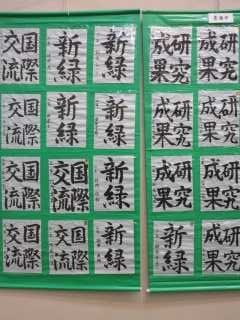 研究
成果
研究
成果
研究
成果
研究
成果
研究
成果
研究
成果
研究
成果
新緑
新緑
新緑
国際
交流
新緑
新緑
国際
交流
新緑
国際
交流
国際
交流
新緑
国際
交流
国際
交流